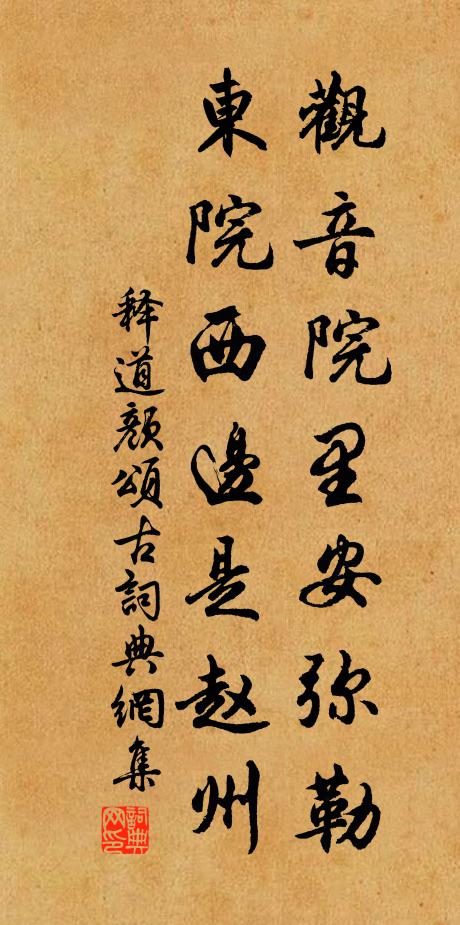 觀音院里安弥勒
東院西邊是赵州
释道颜頌古詞典網集
詞典网印